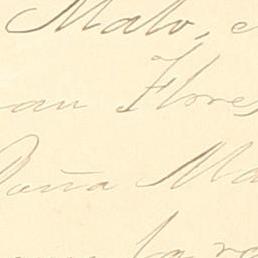 Malo,
an Flores
Doña Ma